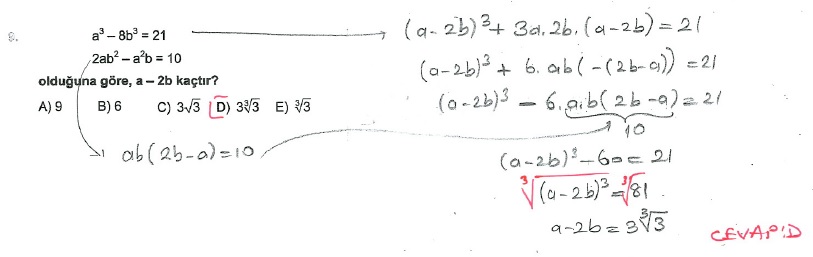 9.
a³ – 8b³ = 21
2ab² – a²b = 10
olduğuna göre, a – 2b kaçtır?
A) 9 B) 6 C) 3√3 D) 3∛3 E) ∛3
ab(2b-a)=10
(a-2b)³ + 3a.2b.(a-2b) = 21
(a-2b)³ + 6.ab(-(2b-a)) = 21
(a-2b)³ - 6.a.b(2b-a) = 21
10
(a-2b)³ - 60 = 21
∛(a-2b)³ = ∛81
a-2b = 3∛3
CEVAP:D